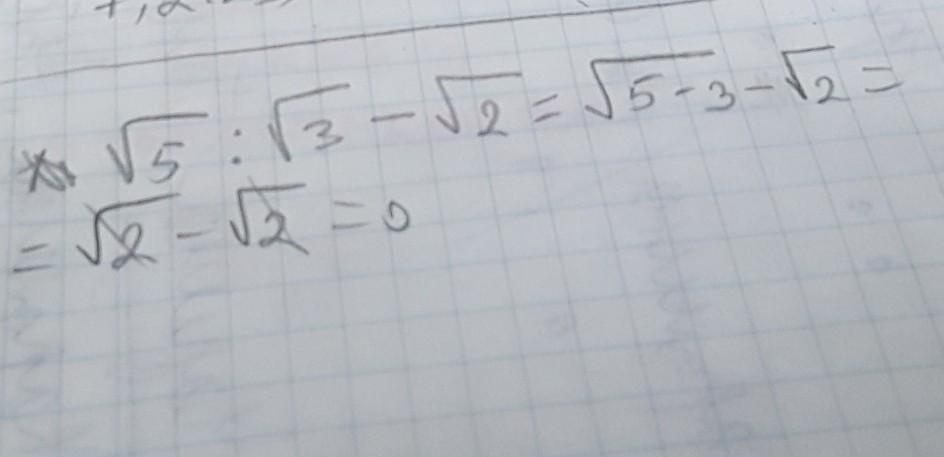 √5 : √3 - √2 = √5-3 - √2 =
= √2 - √2 = 0